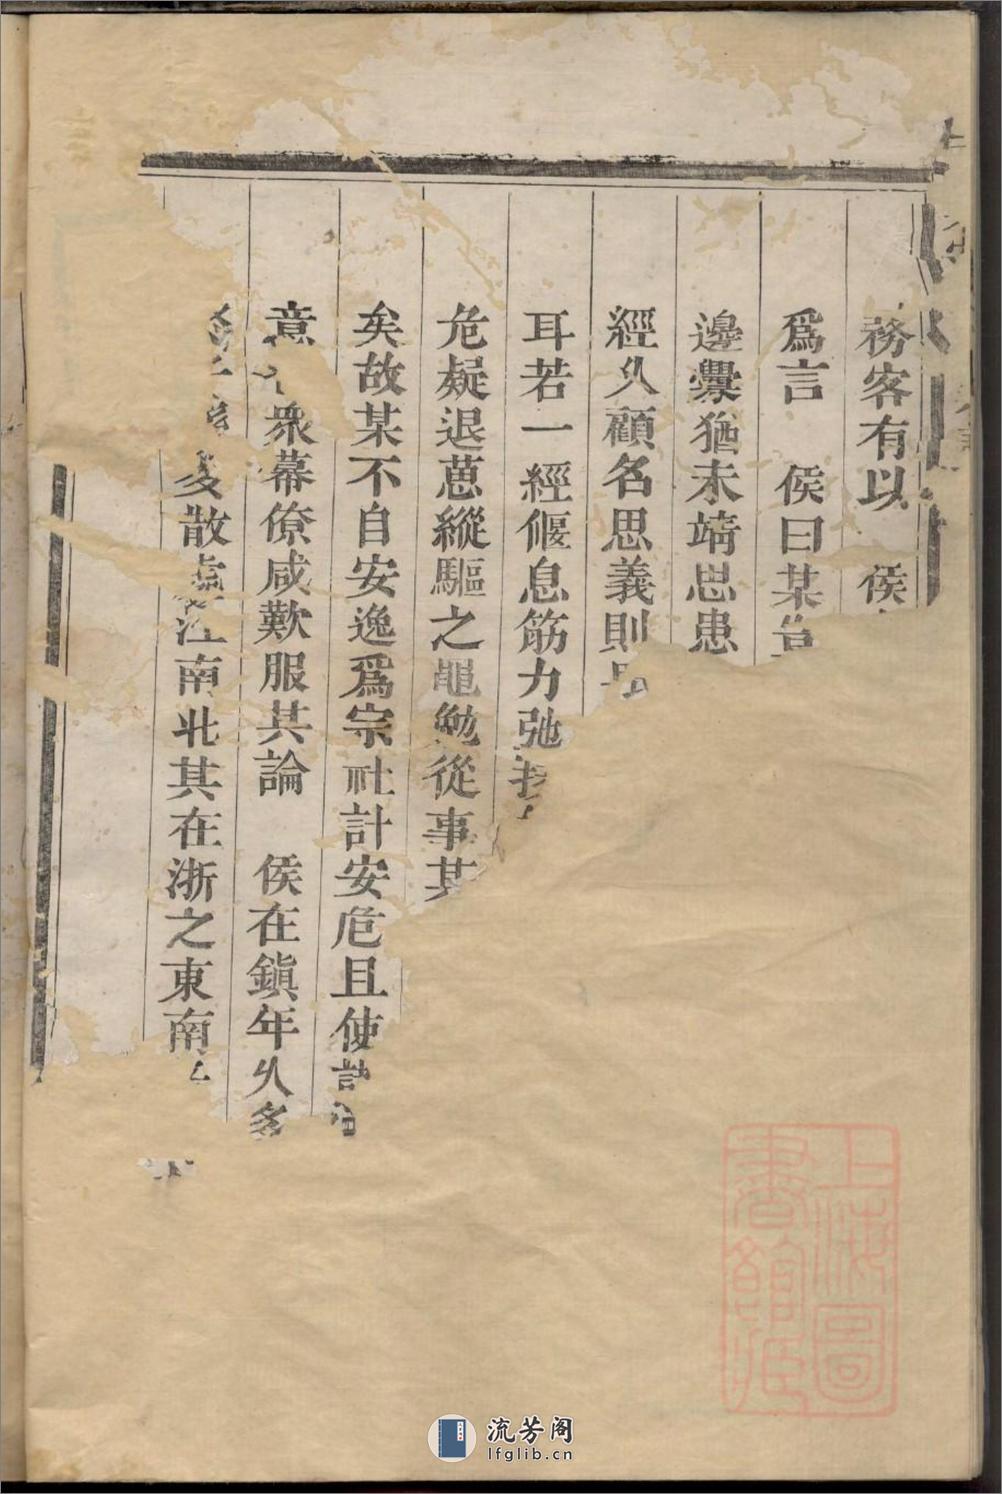 務客有以　侯
爲言　侯曰某
邊釁猶未靖思患
經久顧名思義則
耳若一經偃息筋力弛
危疑退葸縱驅之黽勉從事某
矣故某不自安逸爲宗社計安危且使
意衆幕僚咸歎服其論　侯在鎮年久多
散處江南北其在浙之東南
上海圖書館藏
流芳阁
lfglib.cn